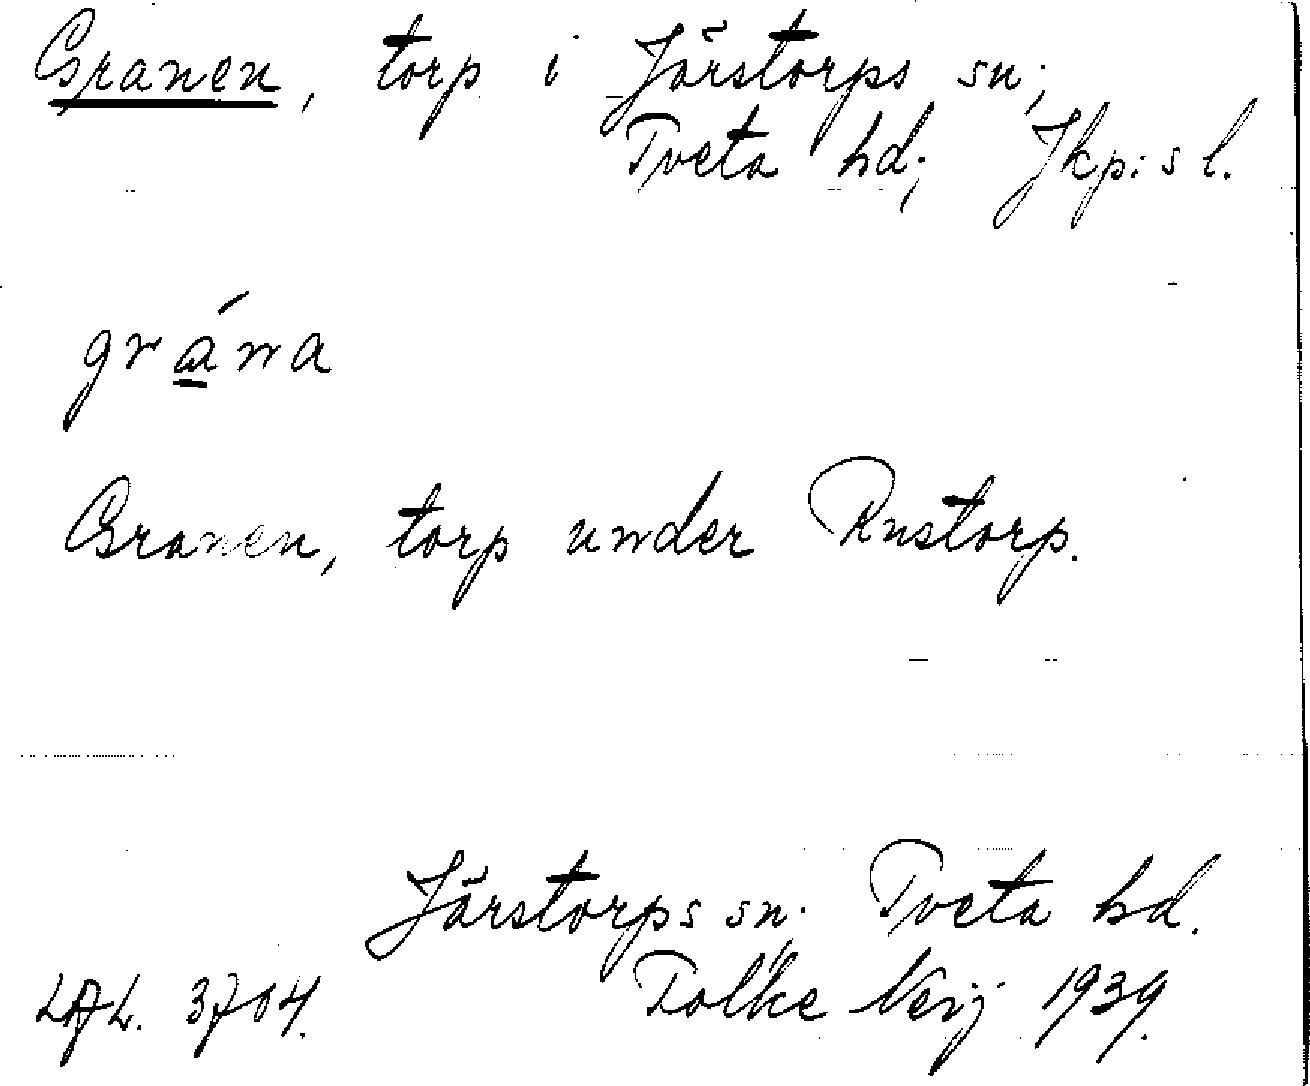 Granen, torp i Järstorps sn;
Tveta hd; Jkp:s l.
grána
Granen, torp under Knstorp.
Järstorps sn. Tveta hd.
LAL. 3704. Folke Verij 1939.